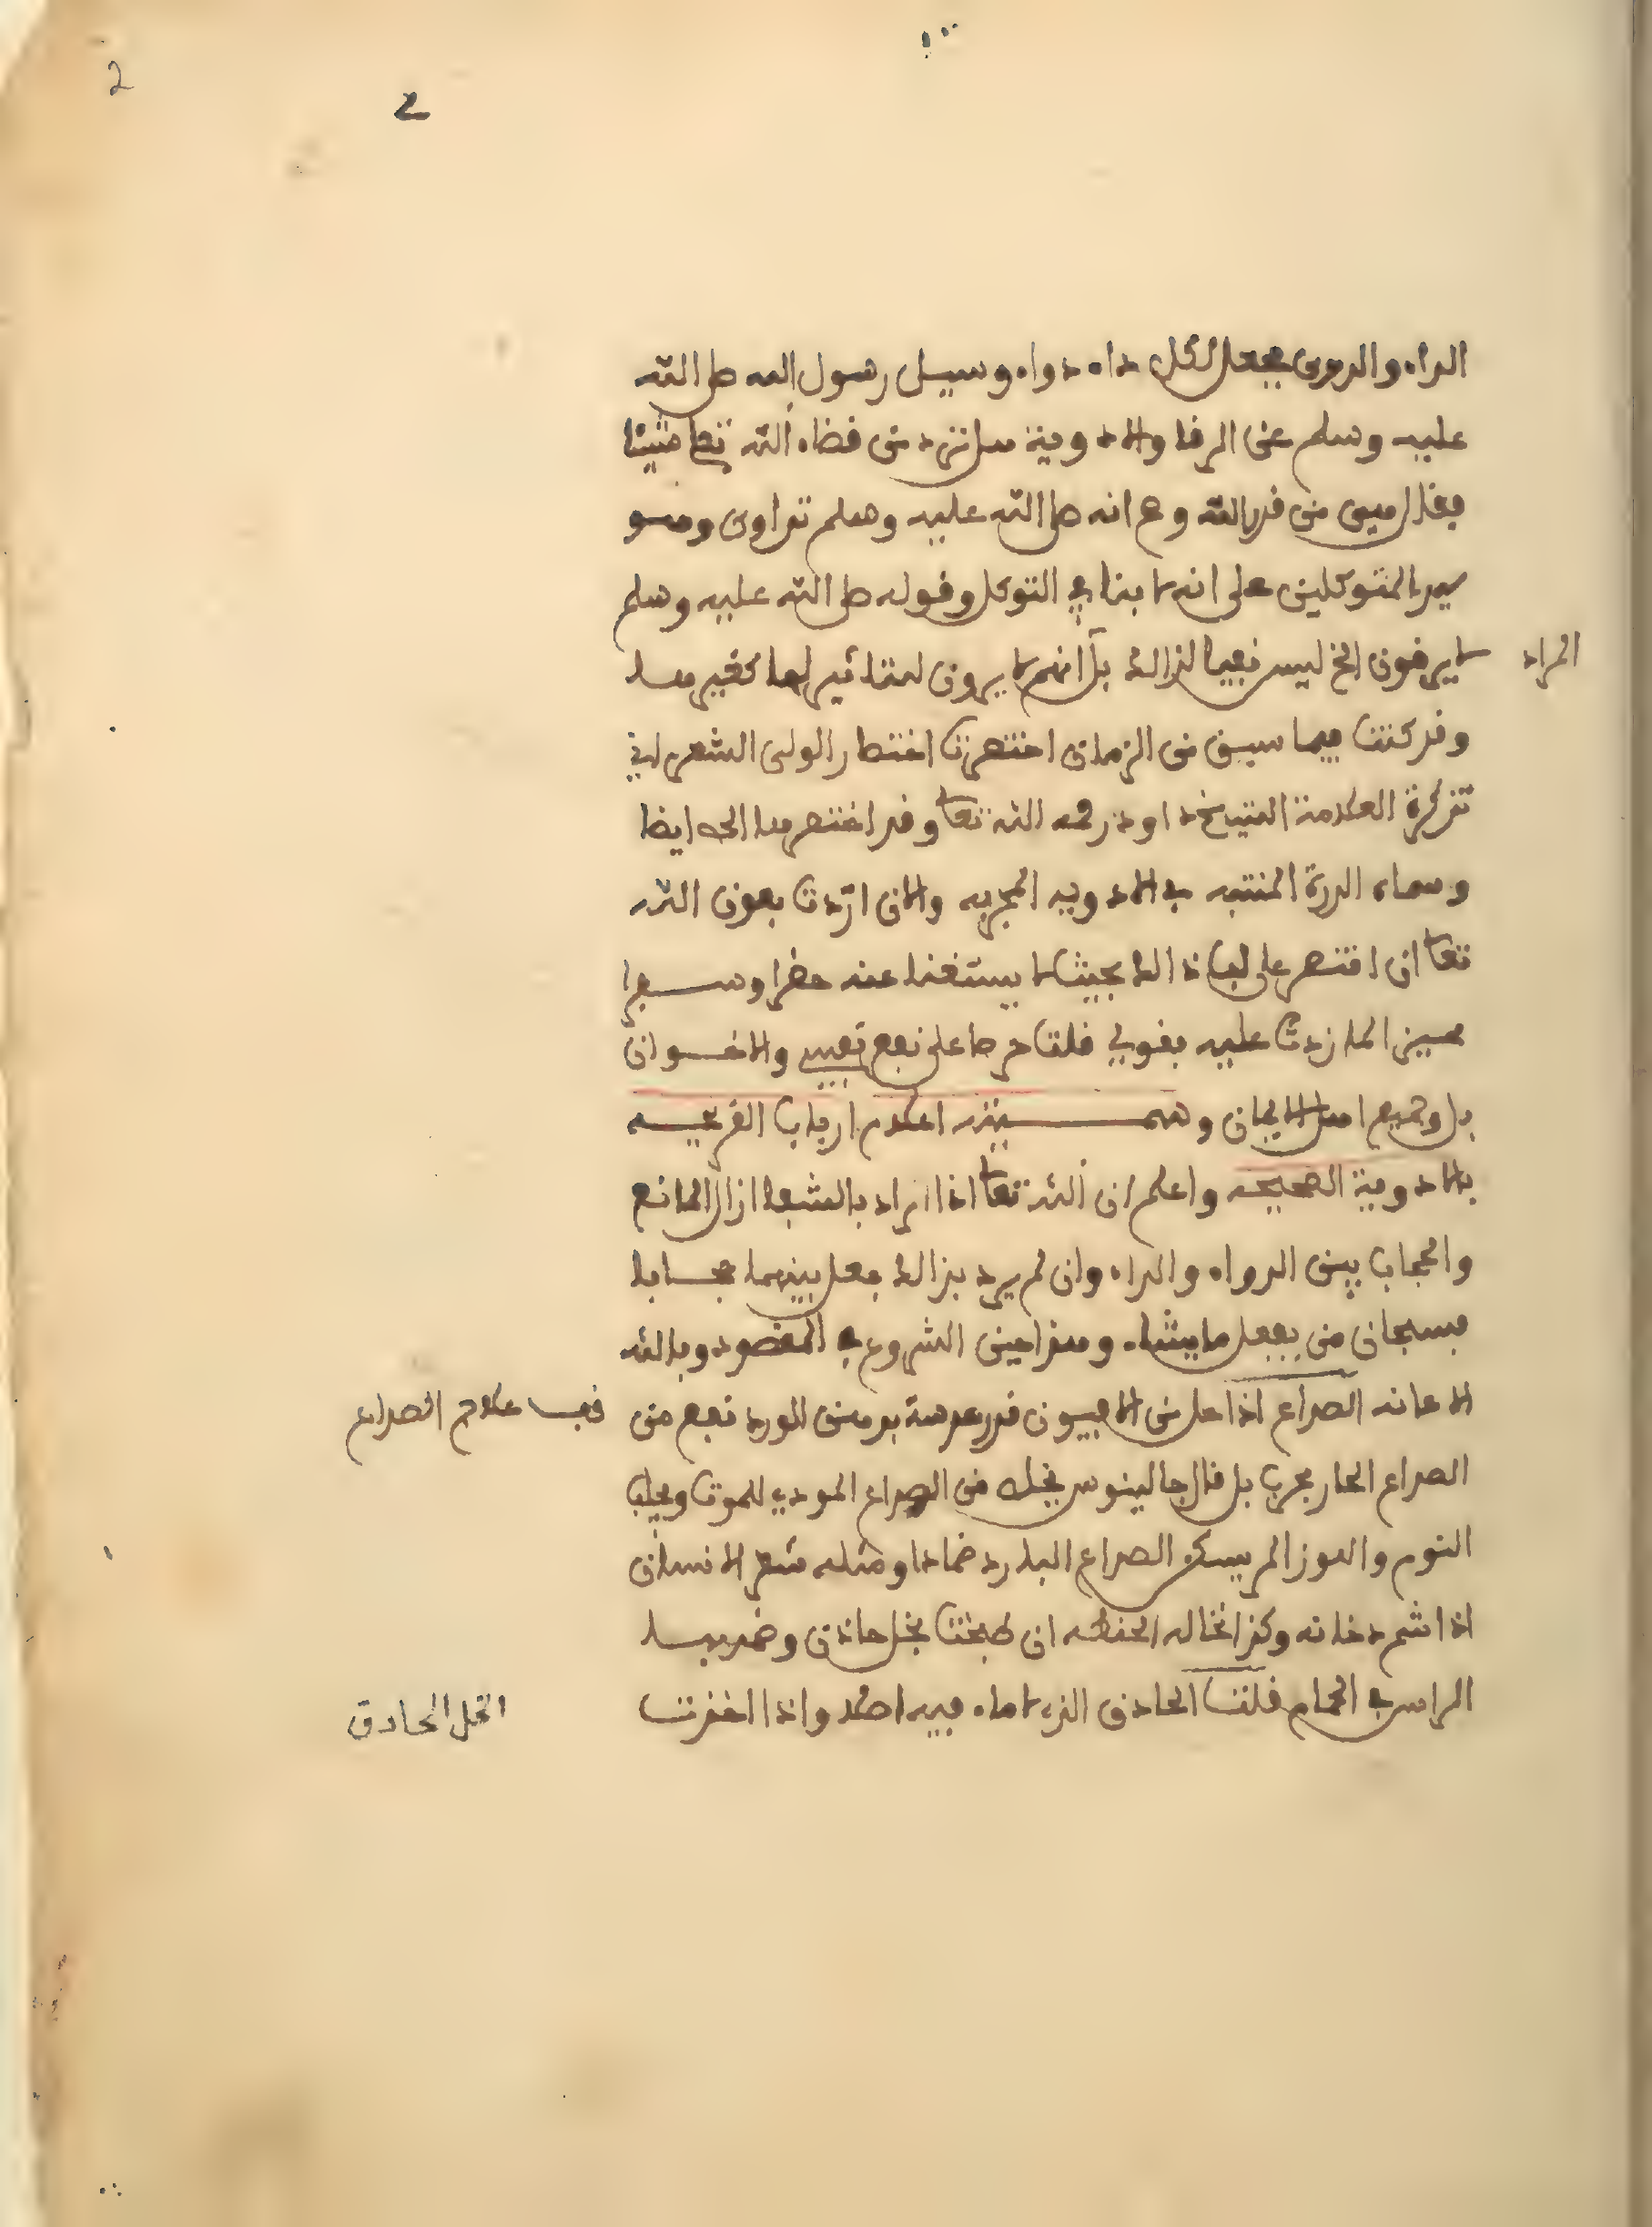 2
2
الداء والدوى بجعل لكل داء دواء وسيل رسول الله صلى الله
عليه وسلم عن الرقا والادوية هل ترد من قضاء الله تعلى شيئا
فقال هي من قدر الله وصح انه صلى الله عليه وسلم تداوى وهو
سيد المتوكلين على انه لا ينافي التوكل وقوله صلى الله عليه وسلم
لا يرقون الخ ليس نفيا لذالك بل انهم لا يرون لها تاثير لها كغيرها
المراد
وقد كنت فيما سبق من الزمان اختصرت اختصار الولي الشعراني
تذكرة العلامة الشيخ داود رحمه الله تعالى وقد اختصرها الجد ايضا
وسماه الدرة المنتخبه في الادويه المجربه والان اردت بعون الله
تعالى ان اقتصر على لباب ذالك بحيث لا يستغنا عنه حضرا وسفرا
مميزا لما زدت عليه بقولي قلت حرصا على نفع نفسي والاخوان
بل وجميع اهل الايمان وسميته اعلام ارباب القريحه
بالادوية الصحيحه واعلم ان الله تعالى اذا اراد بالشفا ازال المانع
والحجاب بين الدواء والداء وان لم يرد بذالك جعل بينهما حجابا
فسبحان من يفعل ما يشاء وهذا حين الشروع في المقصود وبالله
الاعانه الصداع اذا حل من الافيون قدر عدسة بدهن الورد نفع من
قف على علاج الصداع
الصداع الحار مجرب بل قال جالينوس يخلص من الصداع المودي للموت ويجلب
النوم واللوز المر يسكن الصداع البارد ضمادا ومثله شعر الانسان
اذا شم دخانه وكذا نخاله الحنطه ان طبخت بخل حاذق وضمد بها
الراس في الحمام قلت الحاذق الذي لا ماء فيه اصلا واذا اخذت
الخل الحادق